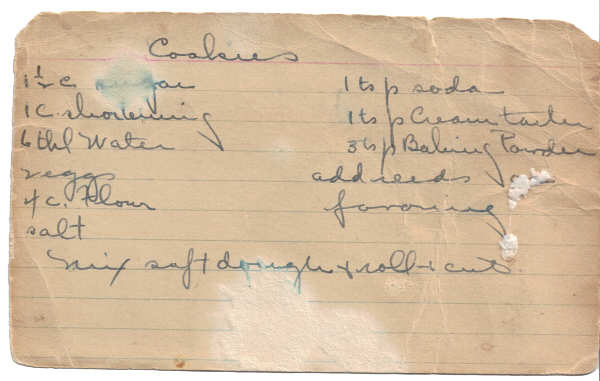 Cookies
1½ c.
1 c. shortening
6 tbl Water
2 eggs
4 c. Flour
salt
1 tsp soda
1 tsp Cream tarter
3 tsp Baking Powder
add
favoring
Mix soft dough & roll & cut.